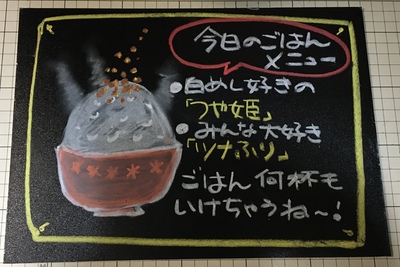 今日のごはん
メニュー
●白めし好きの
「つや姫」
●みんな大好き
「ツナふり」
ごはん何杯も
いけちゃうね～!